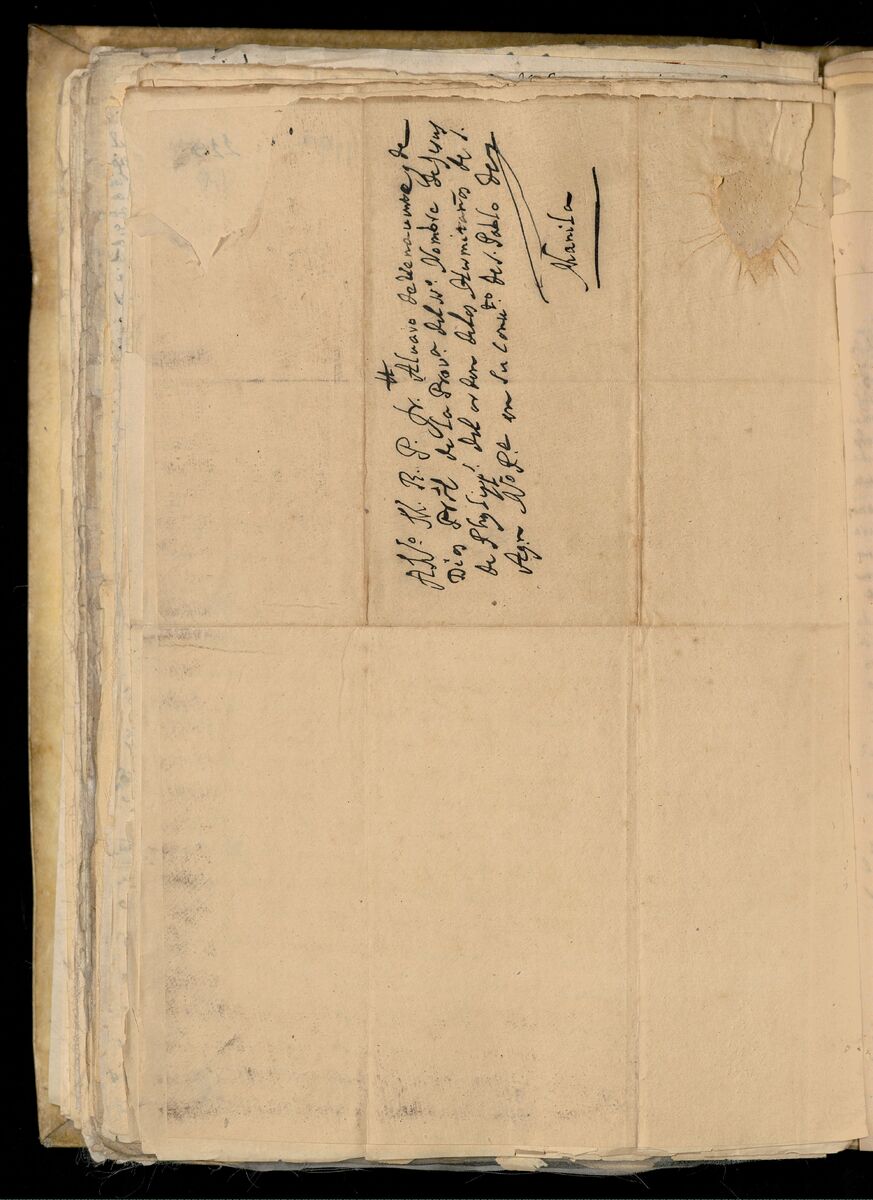 A N.º M. R. P. fr. Alvaro de Benavente, de
Dios Prôl de La Prov.ª del N.e Nombre de Jesus
de Phylipp.s del orden delos Hermitaños de S.
Agn N.º P.e en su Conu.to de S. Pablo de
Manila